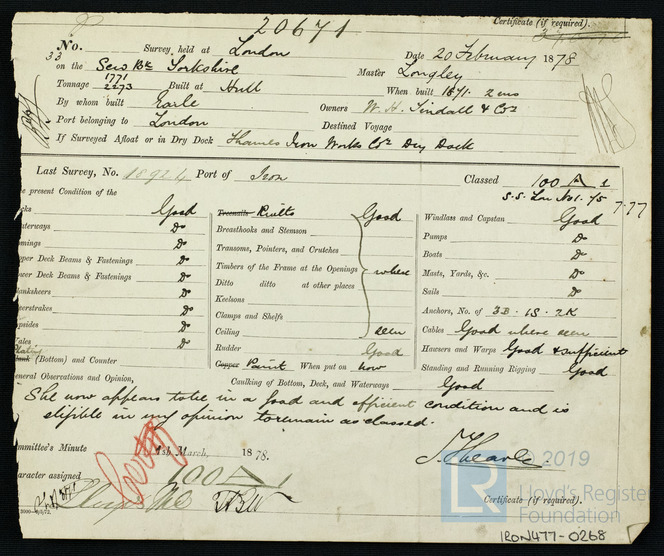 20671
Certificate (if required).
No. Survey held at London Date 20 February 1878
33
on the Scw Bk Yorkshire Master Longley
Tonnage 1771 2273 Built at Hull When built 1871. 2 mo
By whom built Earle Owners W. H. Tindall & Co.
Port belonging to London Destined Voyage
If Surveyed Afloat or in Dry Dock Thames Iron Works Cos Dry Dock
Last Survey, No. 18924 Port of Iron Classed 100 A 1
S.S. Lon No 1. 75 7.77
he present Condition of the
cks Good
aterways Do
mings Do
pper Deck Beams & Fastenings Do
ower Deck Beams & Fastenings Do
anksheers Do
perstrakes Do
psides Do
ales Do
Plating
(Bottom) and Counter
Treenails Rivetts Good
Breasthooks and Stemson
Transoms, Pointers, and Crutches
Timbers of the Frame at the Openings where
Ditto ditto at other places
Keelsons
Clamps and Shelfs
Ceiling seen
Rudder Good
Copper Paint When put on now
Caulking of Bottom, Deck, and Waterways Good
Windlass and Capstan Good
Pumps Do
Boats Do
Masts, Yards, &c. Do
Sails Do
Anchors, No. of 3B. 1S. 2K
Cables Good where seen
Hawsers and Warps Good & sufficient
Standing and Running Rigging Good
eneral Observations and Opinion,
She now appears to be in a good and efficient condition and is
eligible in my opinion to remain as classed.
ommittee's Minute 1st March, 1878.
haracter assigned 100 A 1
© 2019
LR
Lloyd's Register
Foundation
Certificate (if required).
IRON477-0268